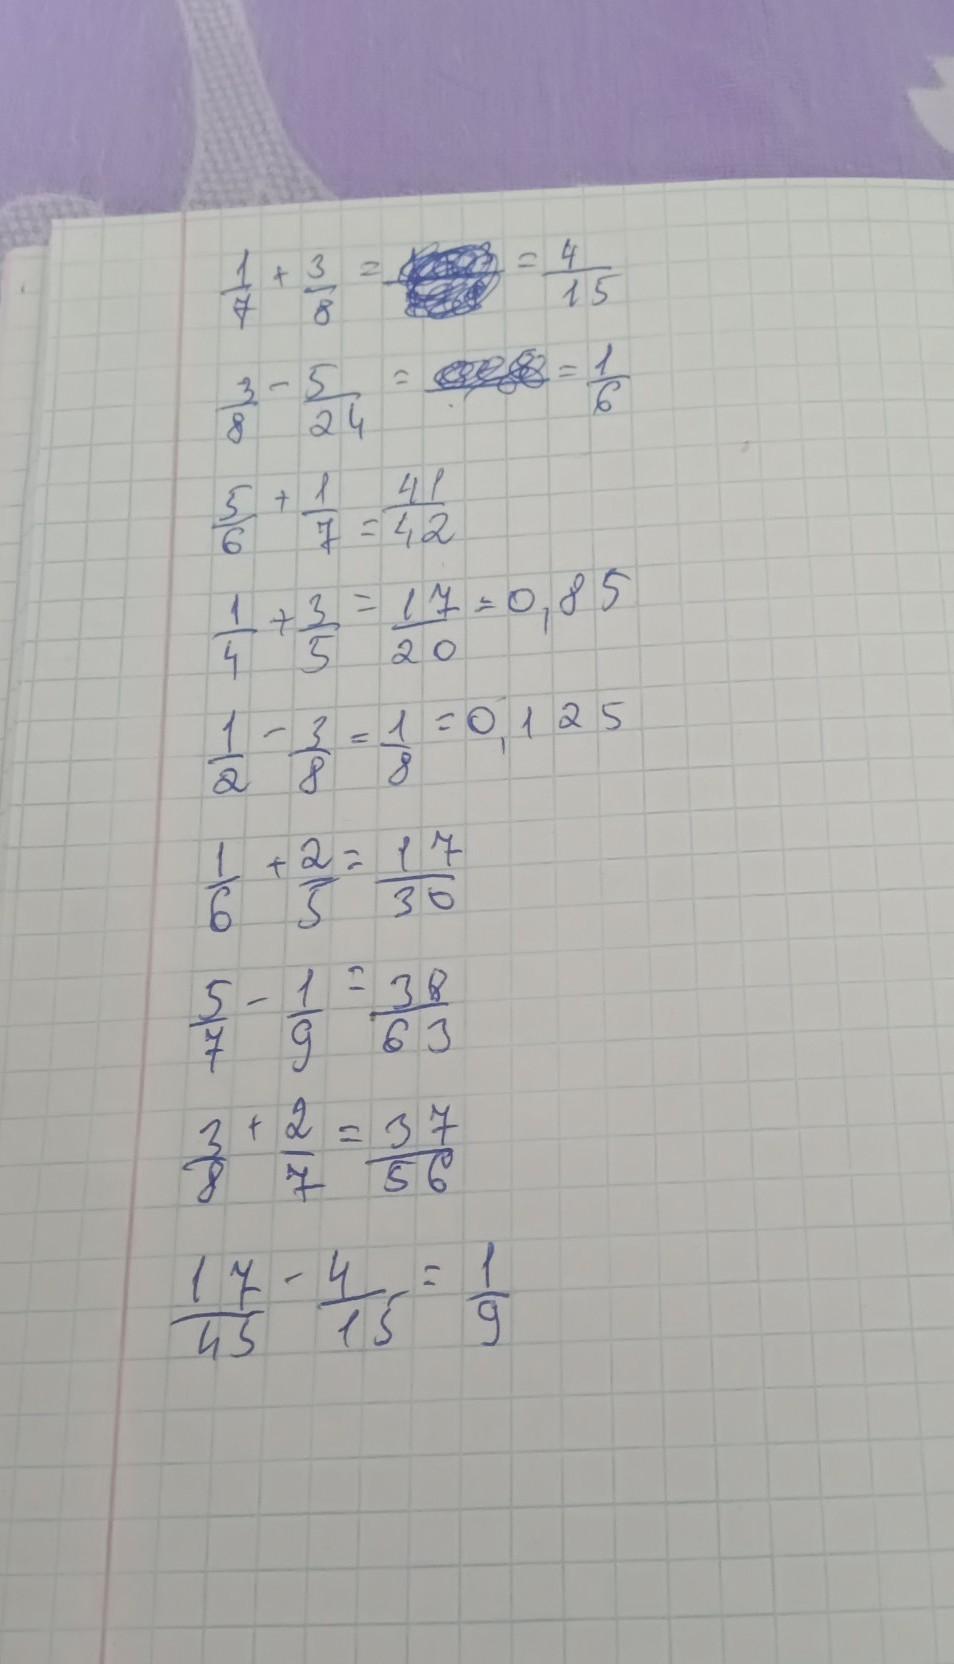 1/7 + 3/8 = = 4/15
3/8 - 5/24 = = 1/6
5/6 + 1/7 = 41/42
1/4 + 3/5 = 17/20 = 0,85
1/2 - 3/8 = 1/8 = 0,125
1/6 + 2/5 = 17/30
5/7 - 1/9 = 38/63
3/8 + 2/7 = 37/56
17/45 - 4/15 = 1/9